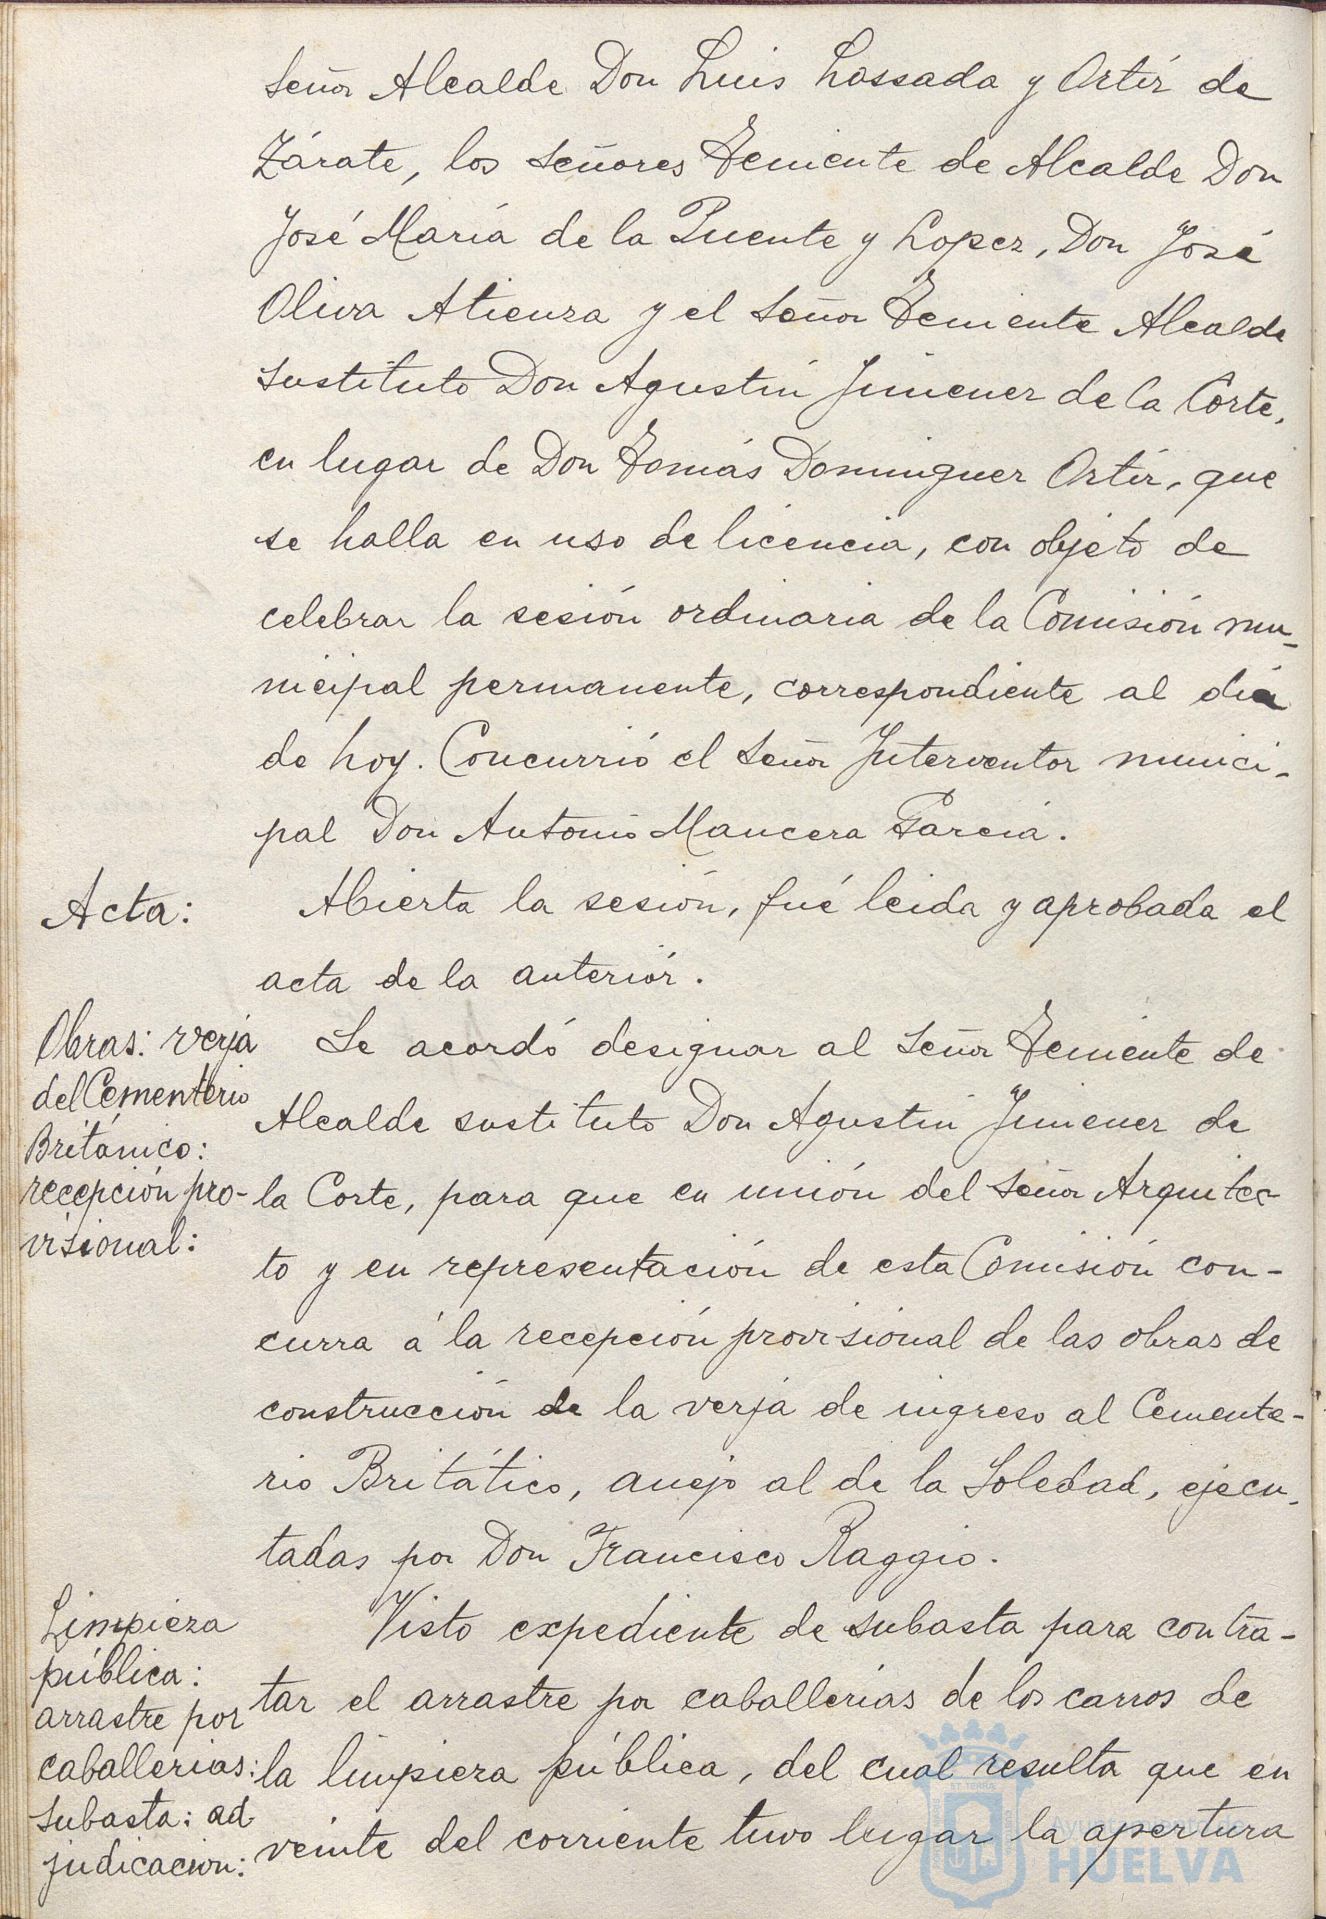 Señor Alcalde Don Luis Lossada y Ortiz de
Zárate, los Señores Teniente de Alcalde Don
José María de la Puente y Lopez, Don José
Oliva Atienza y el Señor Teniente Alcalde
sustituto Don Agustín Jimenez de la Corte,
en lugar de Don Tomás Dominguez Ortiz, que
se halla en uso de licencia, con objeto de
celebrar la sesión ordinaria de la Comisión mu-
nicipal permanente, correspondiente al día
de hoy. Concurrió el Señor Interventor munici-
pal Don Antonio Mancera García.
Acta:
Abierta la sesión, fué leida y aprobada el
acta de la anteriór.
Obras: verja
del Cementerio
Británico:
recepción pro-
visional:
Se acordó designar al Señor Teniente de
Alcalde sustituto Don Agustín Jimenez de
la Corte, para que en unión del Señor Arquitec-
to y en representación de esta Comisión con-
curra á la recepción provisional de las obras de
construcción de la verja de ingreso al Cemente-
rio Britático, anejo al de la Soledad, ejecu-
tadas por Don Francisco Raggio.
Limpieza
pública:
arrastre por
caballerias:
subasta: ad-
judicación:
Visto expediente de subasta para contra-
tar el arrastre por caballerías de los carros de
la limpieza pública, del cual resulta que en
veinte del corriente tuvo lugar la apertura
Ayuntamiento de
HUELVA